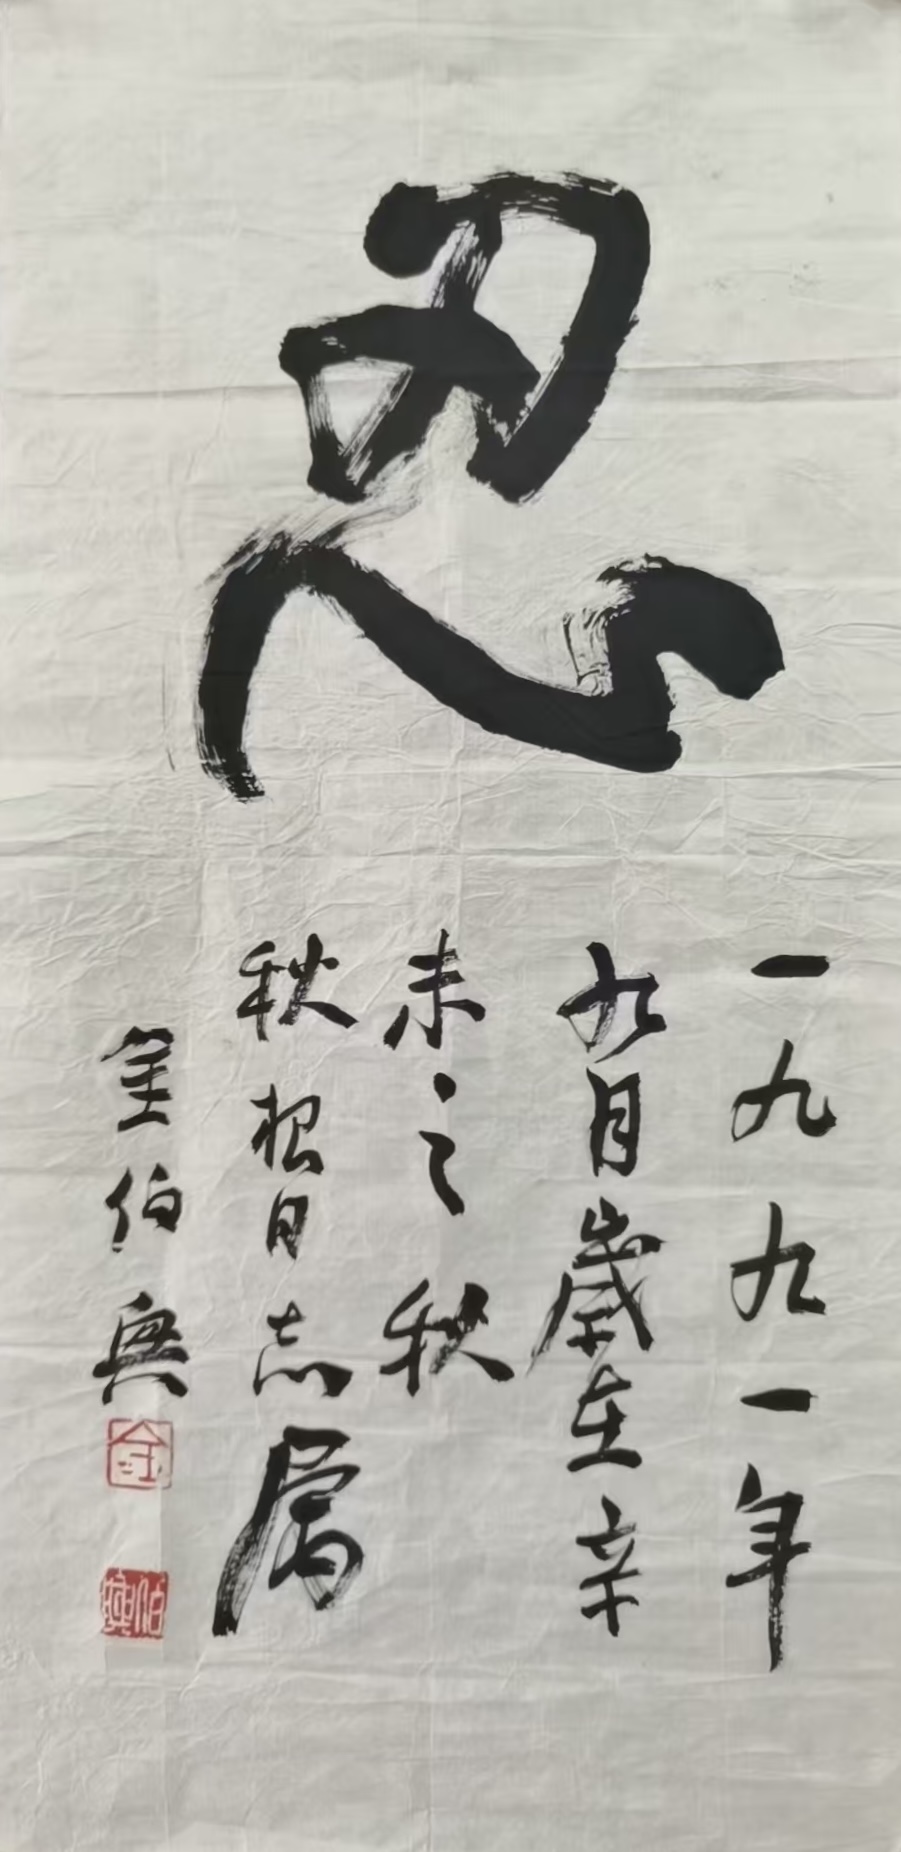 忍
一九九一年
九月歲在辛
未之秋
秋根同志屬
金伯興
金
伯興